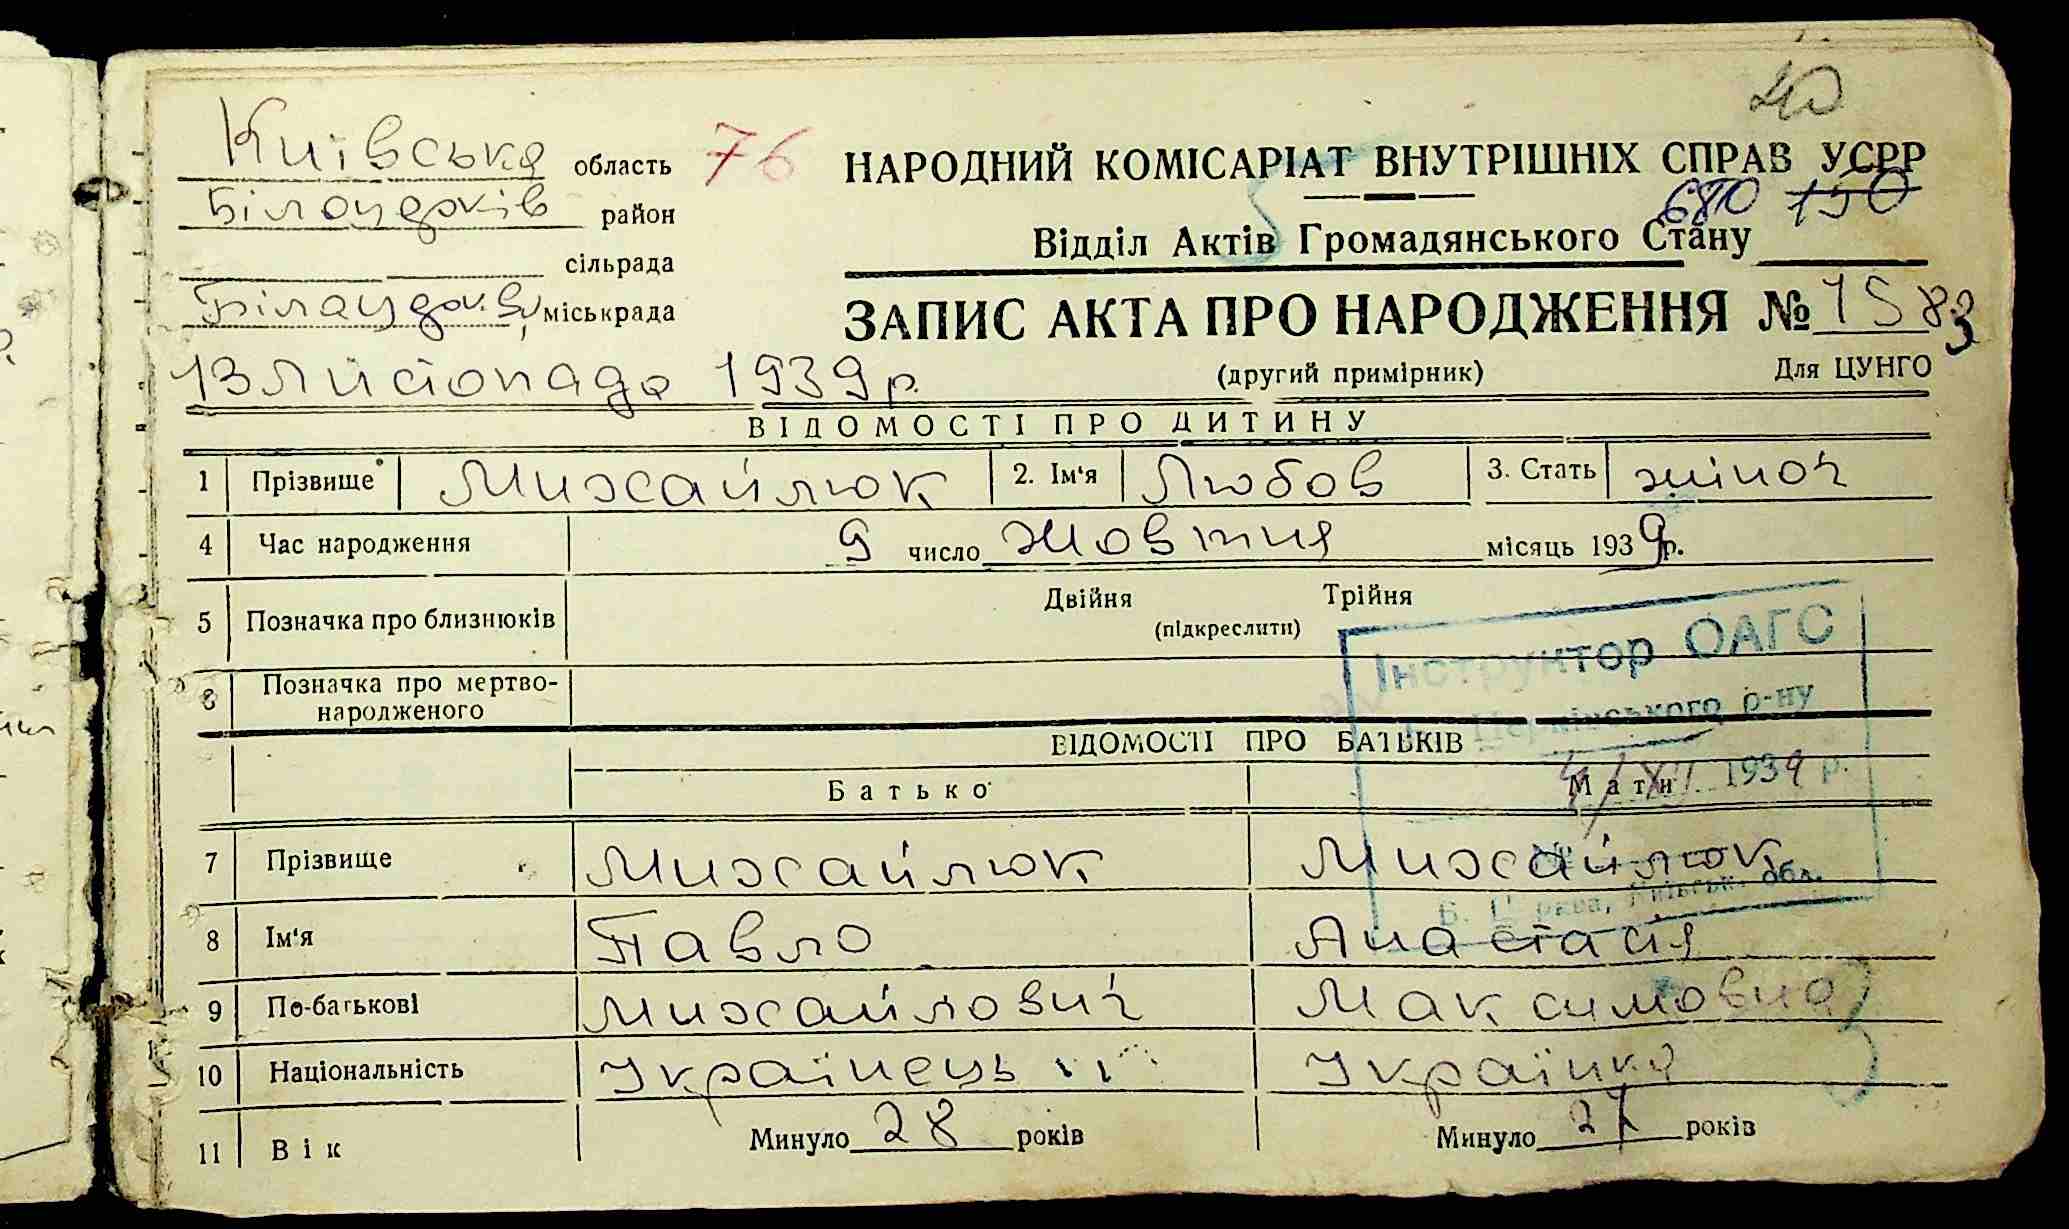 40
Київська область 76 НАРОДНИЙ КОМІСАРІАТ ВНУТРІШНІХ СПРАВ УСРР
район
680 150
Відділ Актів Громадянського Стану
сільрада
міськрада ЗАПИС АКТА ПРО НАРОДЖЕННЯ № 1583
13 Листопада 1939 р. (другий примірник) Для ЦУНГО
ВІДОМОСТІ ПРО ДИТИНУ
1 Прізвище Михайлюк 2. Ім'я Любов 3. Стать жіноч
4 Час народження 9 число Жовтня місяць 1939 р.
5 Позначка про близнюків Двійня Трійня
(підкреслити)
6 Позначка про мертво-
народженого
Інструктор ОАГС
Церківського р-ну
1939 р.
Б. Церква, Київськ. обл.
ВІДОМОСТІ ПРО БАТЬКІВ
Батько Мати
7 Прізвище Михайлюк Михайлюк
8 Ім'я Павло Анастасія
9 По-батькові Михайлович Максимовна
10 Національність Українець Українка
11 Вік Минуло 28 років Минуло 27 років